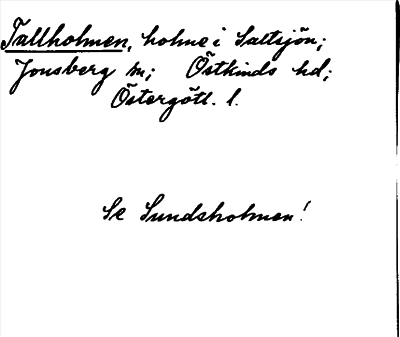 Tallholmen, holme i Saltsjön;
Jonsberg sn; Östkinds hd;
Östergötl. l.
Se Sundsholmen!